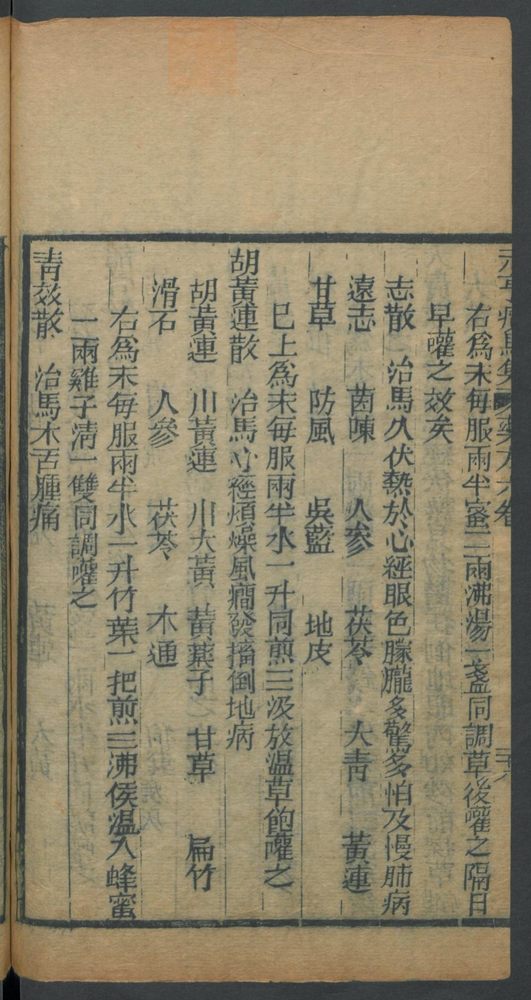 右爲末每服兩半蜜二兩沸湯一盞同調草後嚾之隔日
早嚾之效矣
志散 治馬久伏熱於心經眼色朦朧多驚多怕及慢肺病
遠志 茵陳 人參 茯苓 大青 黃連
甘草 防風 吳藍 地皮
已上爲末每服兩半水一升同煎三汲放温草飽嚾之
胡黃連散 治馬心經煩燥風癎發搐倒地病
胡黃連 川黃連 川大黃 黃藥子 甘草 扁竹
滑石 人參 茯苓 木通
右爲末每服兩半水一升竹葉一把煎三沸侯温入蜂蜜
二兩雞子清一雙同調嚾之
青效散 治馬木舌腫痛